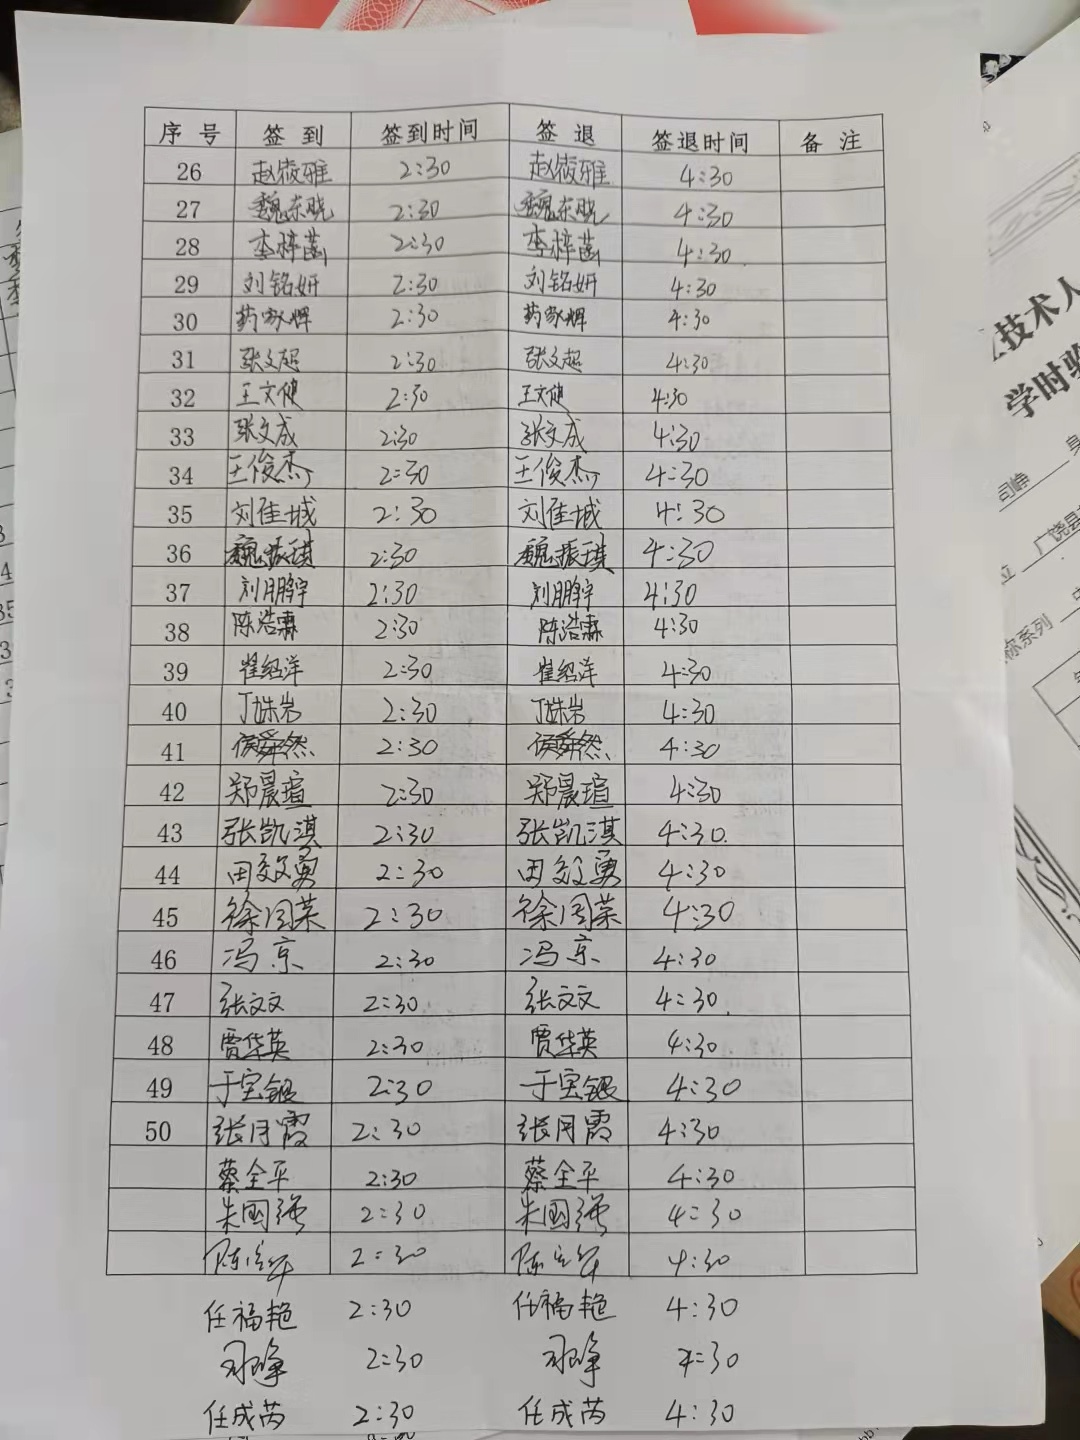 序号 签到 签到时间 签退 签退时间 备注
26 赵筱雅 2:30 赵筱雅 4:30
27 魏东晓 2:30 魏东晓 4:30
28 李梓菡 2:30 李梓菡 4:30
29 刘铭妍 2:30 刘铭妍 4:30
30 药家辉 2:30 药家辉 4:30
31 张文超 2:30 张文超 4:30
32 王文健 2:30 王文健 4:30
33 张文成 2:30 张文成 4:30
34 王俊杰 2:30 王俊杰 4:30
35 刘佳城 2:30 刘佳城 4:30
36 魏振琪 2:30 魏振琪 4:30
37 刘鹏宇 2:30 刘鹏宇 4:30
38 陈浩霖 2:30 陈浩霖 4:30
39 崔绍洋 2:30 崔绍洋 4:30
40 丁姝岩 2:30 丁姝岩 4:30
41 侯舜然 2:30 侯舜然 4:30
42 郑晨瑄 2:30 郑晨瑄 4:30
43 张凯淇 2:30 张凯淇 4:30
44 田效勇 2:30 田效勇 4:30
45 徐国荣 2:30 徐国荣 4:30
46 冯京 2:30 冯京 4:30
47 张文文 2:30 张文文 4:30
48 贾华英 2:30 贾华英 4:30
49 于宝银 2:30 于宝银 4:30
50 张月霞 2:30 张月霞 4:30
蔡全平 2:30 蔡全平 4:30
朱国强 2:30 朱国强 4:30
2:30 4:30
任福艳 2:30 任福艳 4:30
司峥 2:30 司峥 4:30
任成芮 2:30 任成芮 4:30
技术人
学时验
司峥
广饶县
称系列